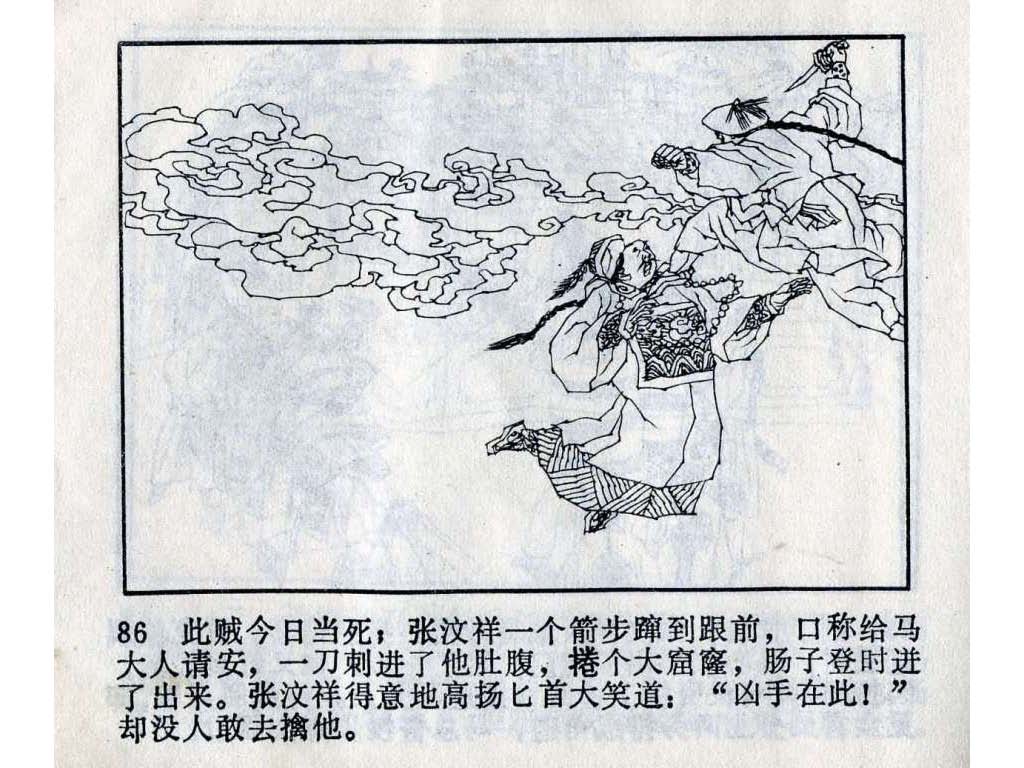 86 此贼今日当死；张汶祥一个箭步蹿到跟前，口称给马
大人请安，一刀刺进了他肚腹，捲个大窟窿，肠子登时迸
了出来。张汶祥得意地高扬匕首大笑道：“凶手在此！”
却没人敢去擒他。